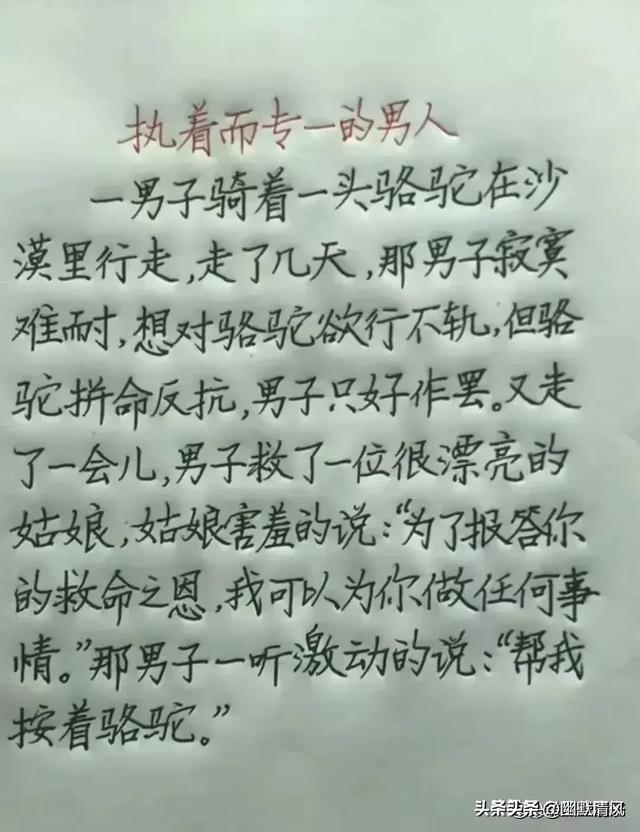 执着而专一的男人
一男子骑着一头骆驼在沙
漠里行走，走了几天，那男子寂寞
难耐，想对骆驼欲行不轨，但骆
驼拼命反抗，男子只好作罢。又走
了一会儿，男子救了一位很漂亮的
姑娘，姑娘害羞的说：“为了报答你
的救命之恩，我可以为你做任何事
情。”那男子一听激动的说：“帮我
按着骆驼。”
头条头条@幽默清风